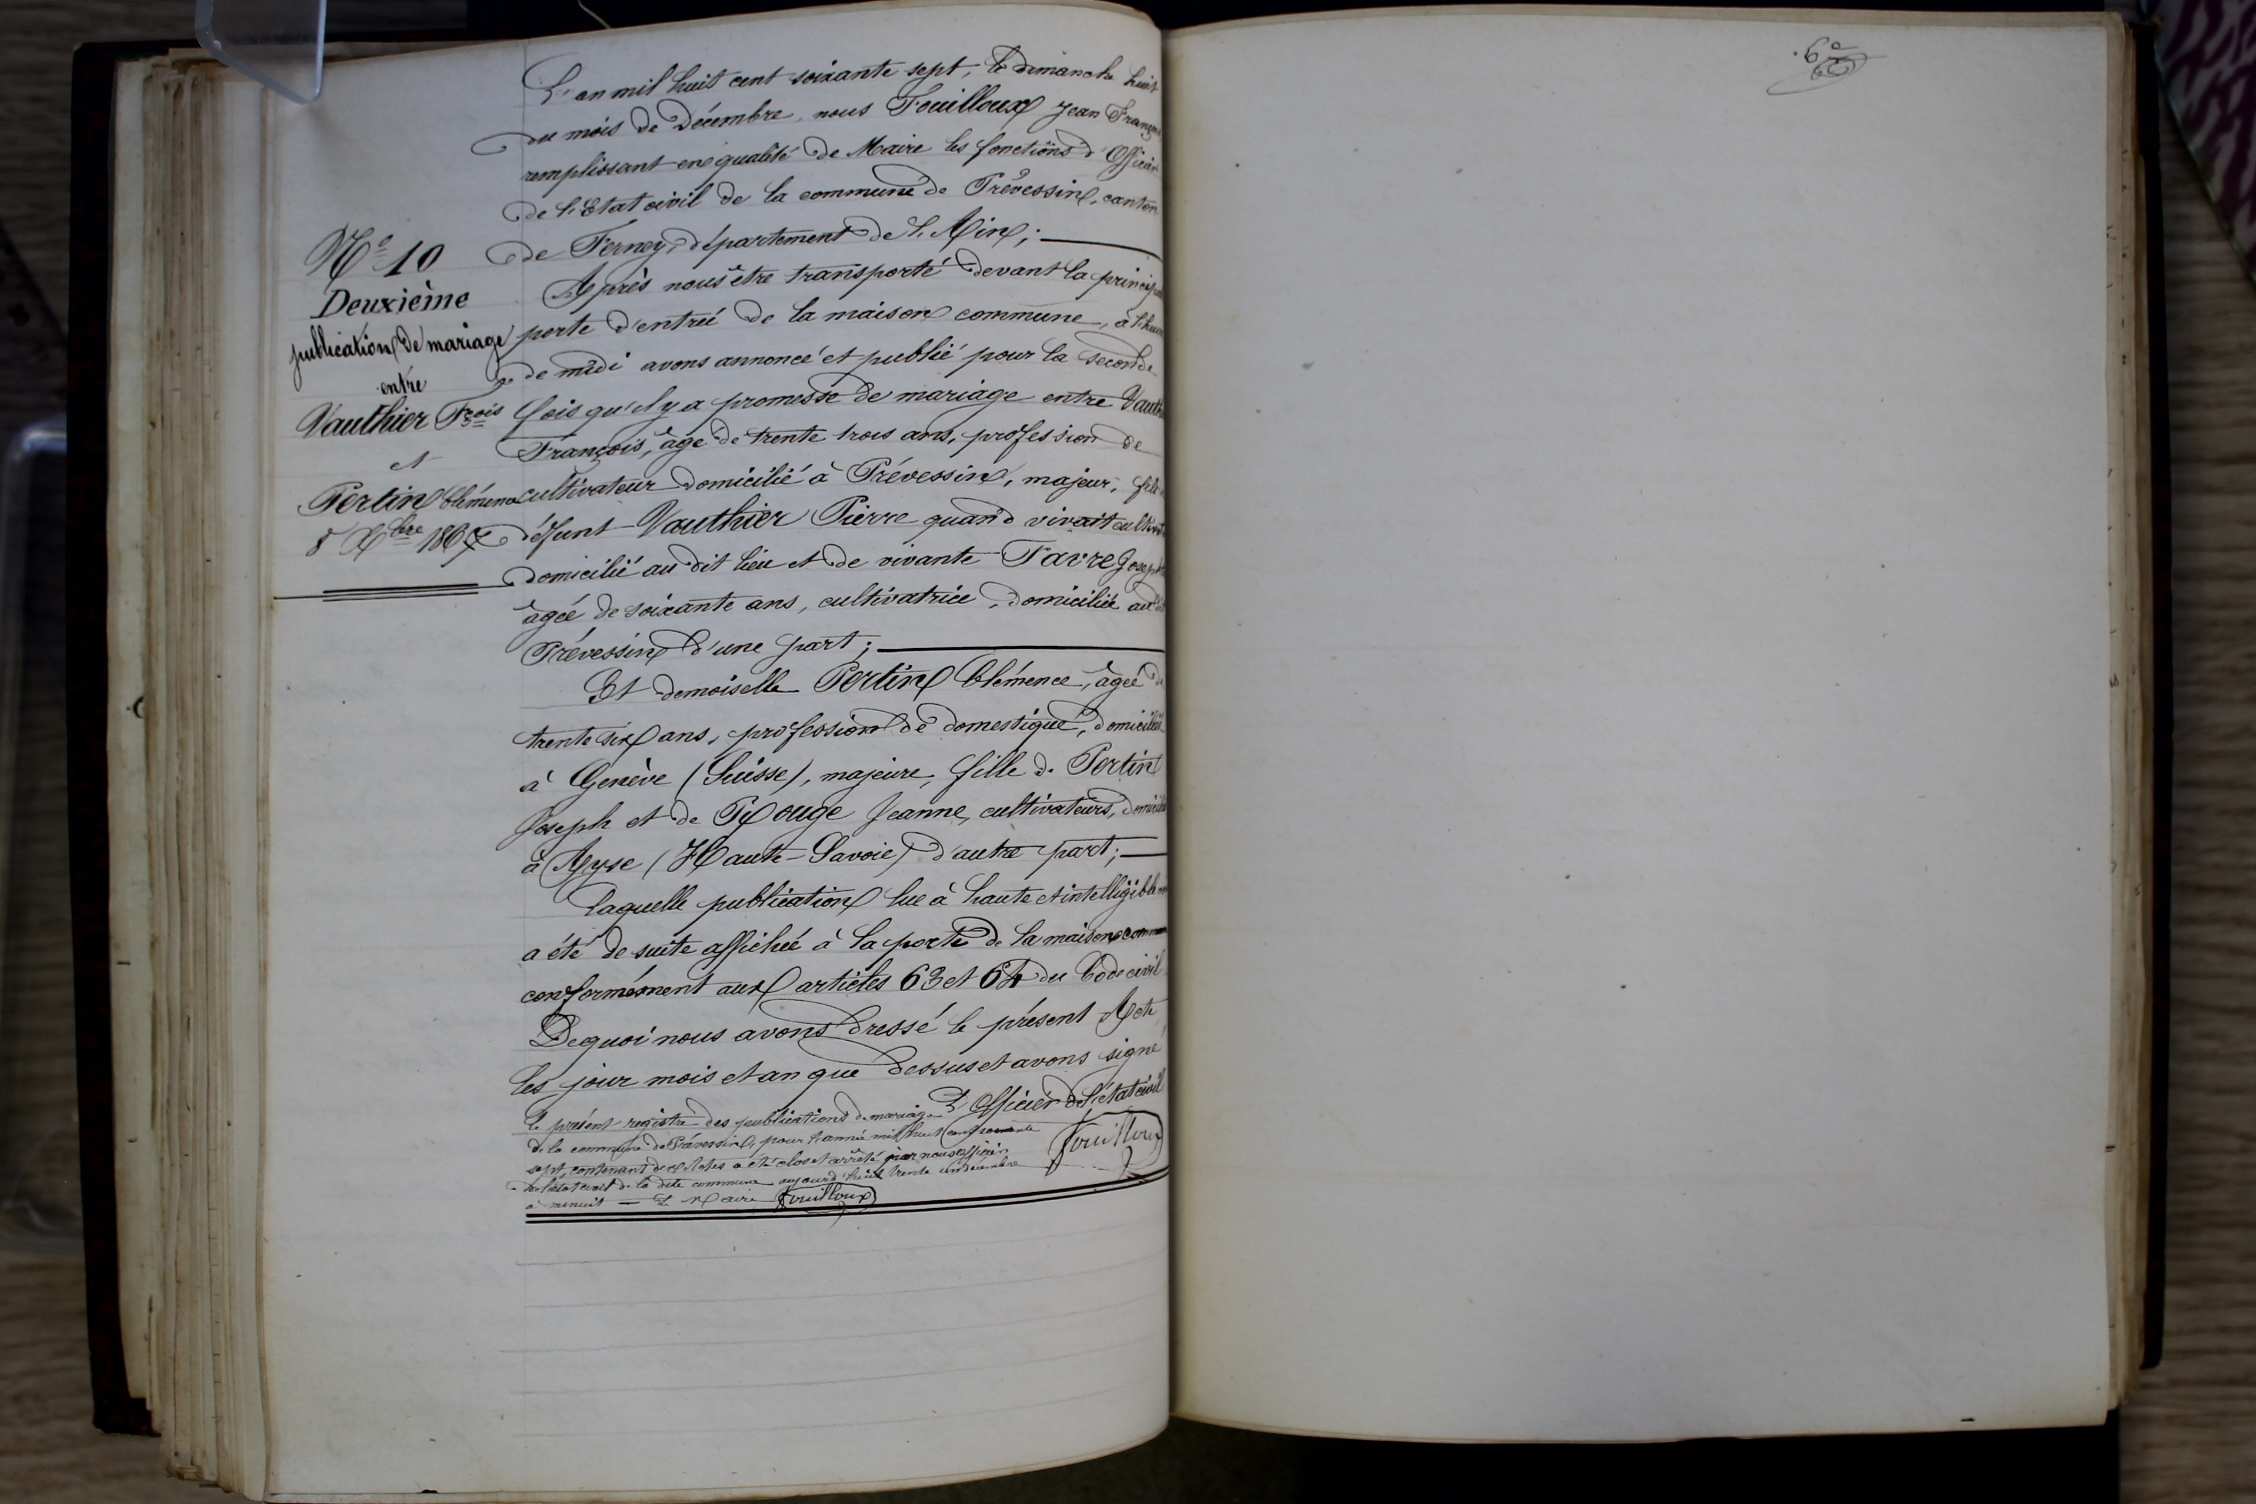 L'an mil huit cent soixante sept, le dimanche huit
du mois de Décembre, nous Fouilloux Jean François
remplissant en qualité de Maire les fonctions d'Officier
de l'Etat civil de la commune de Prévessin, canton
de Ferney, département de l'Ain;
Après nous être transporté devant la principale
porte d'entrée de la maison commune, à l'heure
de midi avons annoncé et publié pour la seconde
fois qu'il y a promesse de mariage entre Vauthier
François, âgé de trente trois ans, profession de
cultivateur domicilié à Prévessin, majeur, fils
défunt Vauthier Pierre quand vivait cultivat
domicilié au dit lieu et de vivante Favre Joseph
âgée de soixante ans, cultivatrice, domiciliée au dit
Prévessin d'une part;
Et demoiselle Pertin Clémence, âgée de
trente six ans, profession de domestique, domiciliée
à Genève (Suisse), majeure, fille de Pertin
Joseph et de Rouge Jeanne, cultivateurs, domiciliés
à Ayse (Haute-Savoie) d'autre part;
laquelle publication lue à haute et intelligible
a été de suite affichée à la porte de la maison commune
conformément aux articles 63 et 64 du Code civil
De quoi nous avons dressé le présent Acte
les jour mois et an que dessus et avons signé
L'Officier de l'état civil
Fouilloux
N° 10
Deuxième
publication de mariage
entre
Vauthier Fçois
et
Pertin Clémence
8 Xbre 1867
le présent registre des publications de mariage
de la commune de Prévessin, pour l'année mil huit cent soixante
sept, contenant dix Actes a été clos et arrêté par nous officier
de l'état civil de la dite commune aujourd'hui trente un décembre
à minuit — Le Maire Fouilloux
6e